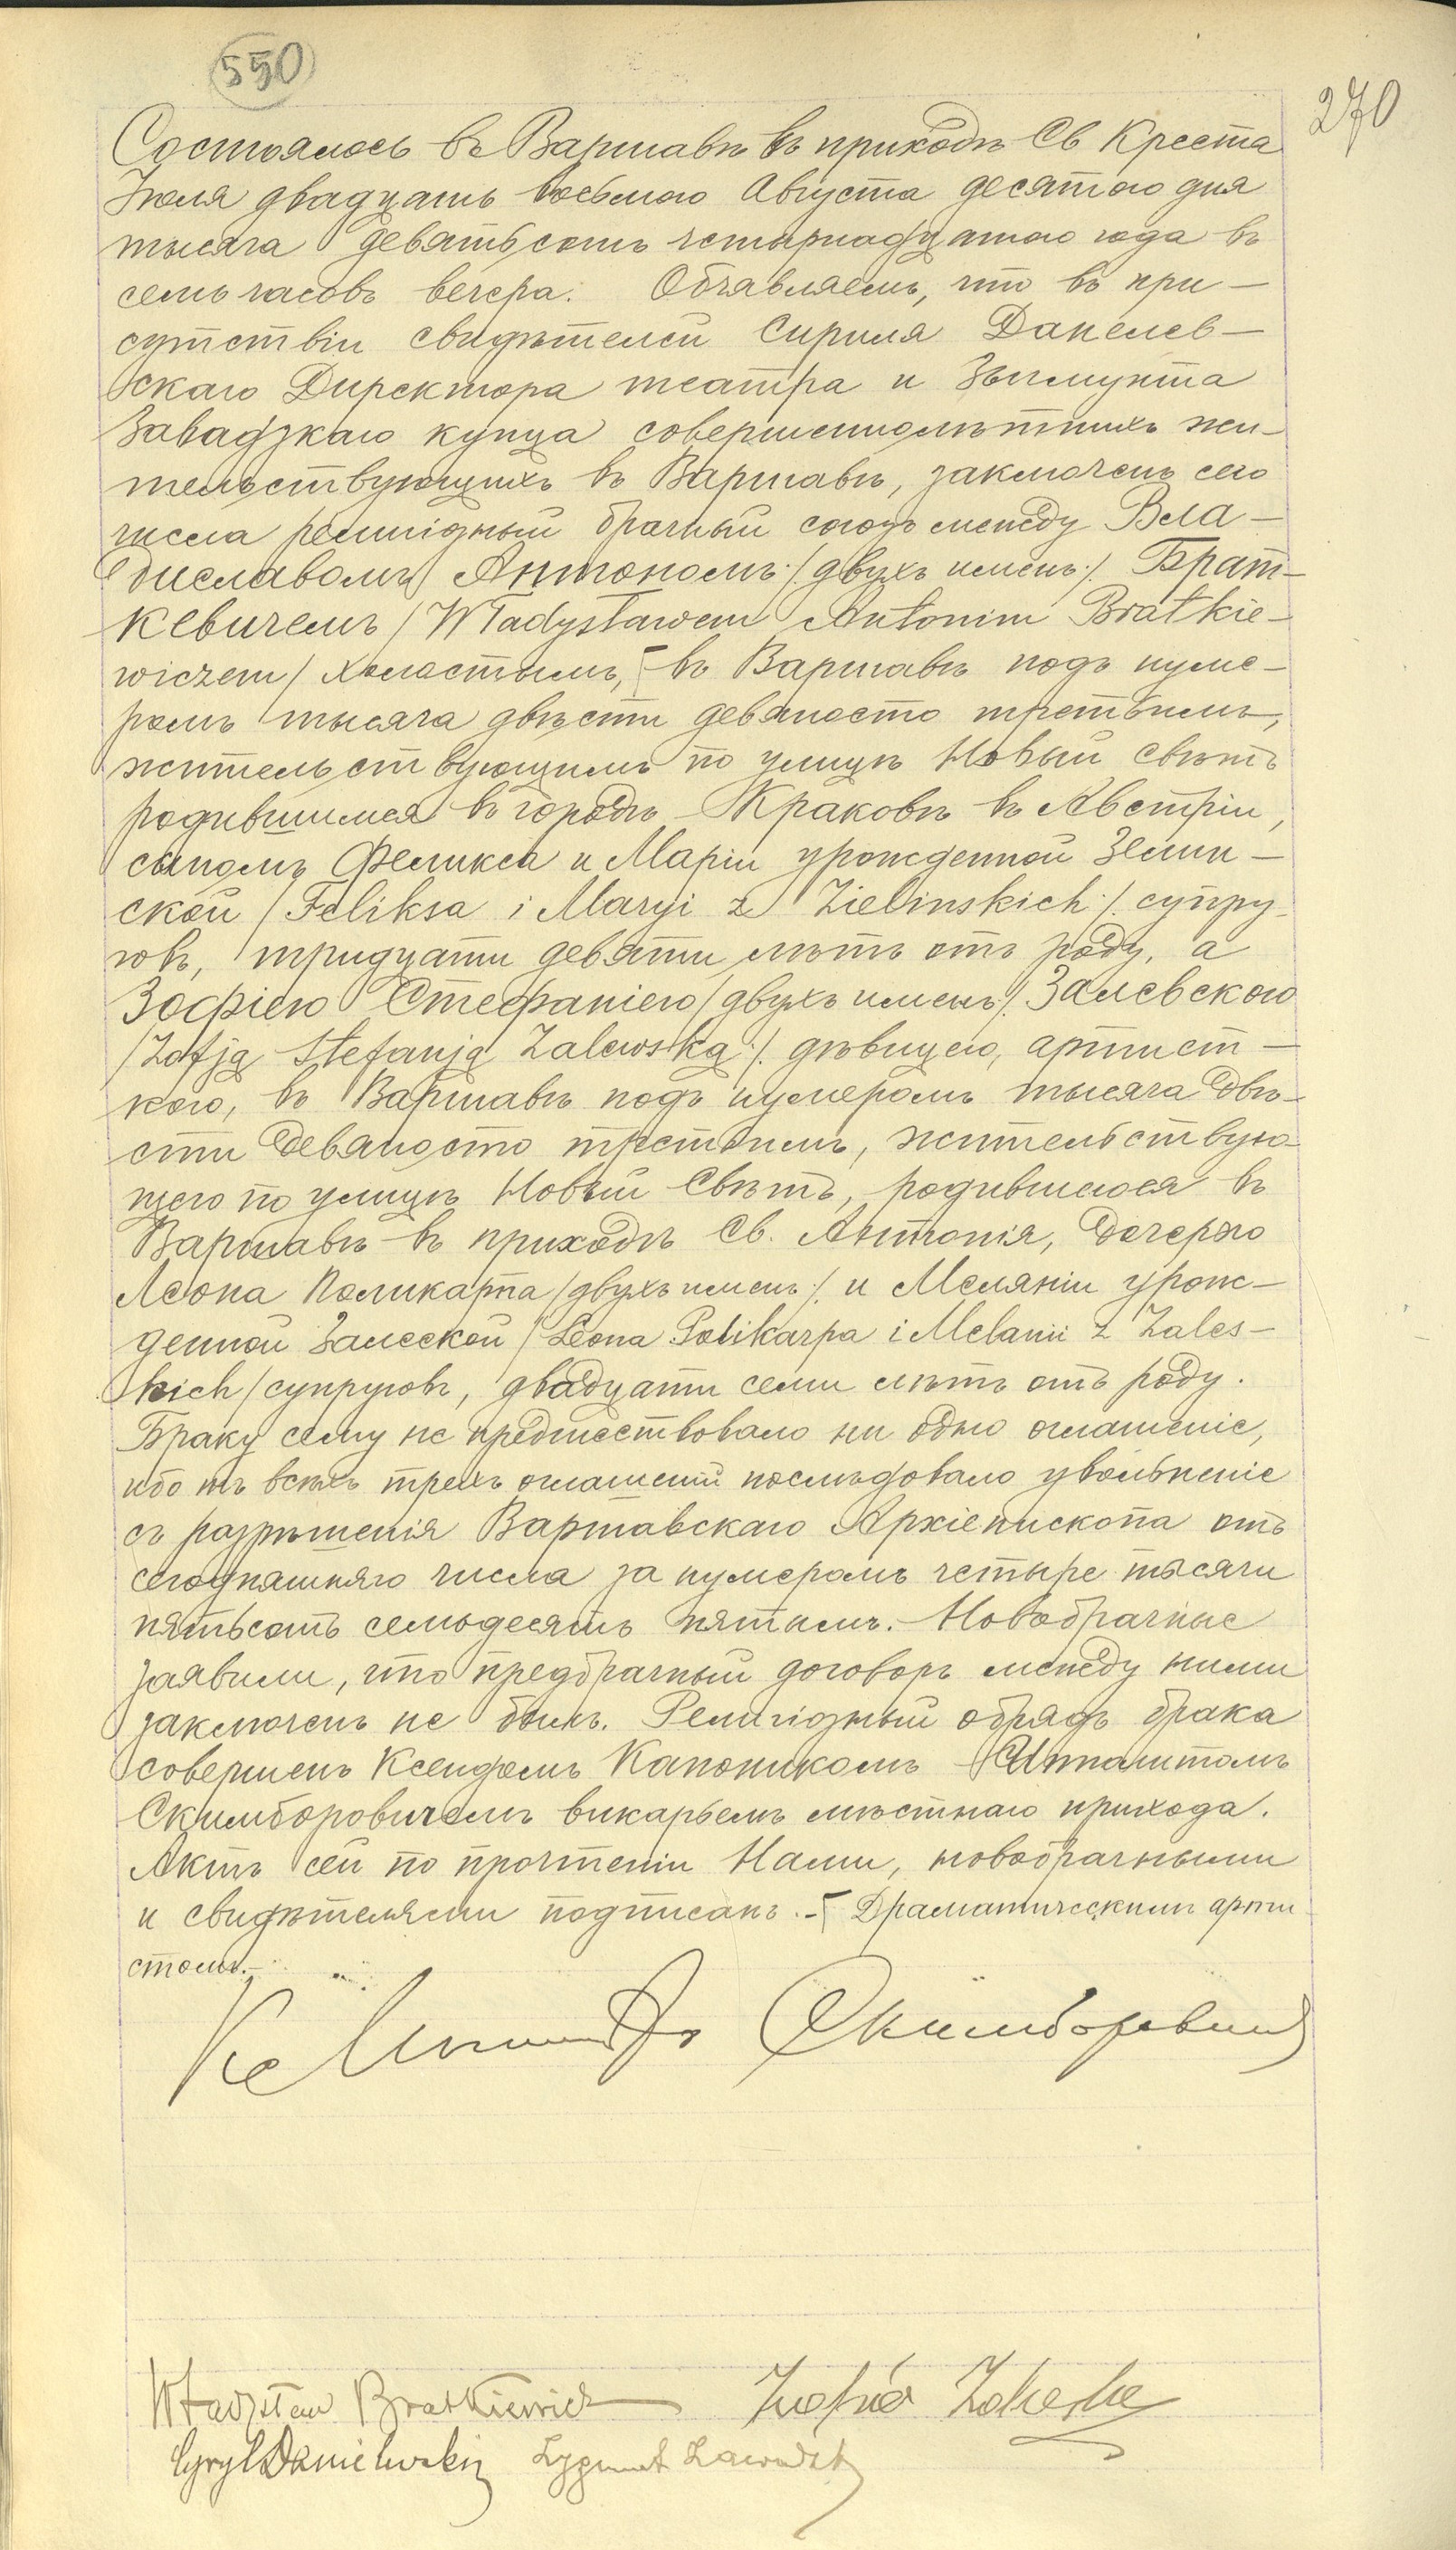 550
270
Состоялось въ Варшавѣ въ приходѣ Св Креста
Iюля двадцать восьмого Августа десятого дня
тысяча девятьсотъ четырнадцатаго года въ
семь часовъ вечера. Объявляемъ, что въ при-
сутствіи свидѣтелей Сириля Данелев-
скаго Директора театра и Зыгмунта
Завадзкаго купца совершеннолѣтнихъ жи-
тельствующихъ въ Варшавѣ, заключенъ сего
числа религіозный брачный союзъ между Вла-
диславомъ Антономъ /двухъ именъ/ Брат-
кевичемъ /Władysławem Antonim Bratkie-
wiczem/ холостымъ, ⌈ въ Варшавѣ подъ нуме-
ромъ тысяча двѣсти девяносто третьимъ,
жительствующимъ по улицѣ Новый Свѣтъ
родившимся въ городѣ Краковѣ въ Австріи,
сыномъ Феликса и Маріи урожденной Зелин-
ской /Feliksa i Maryi z Zielinskich/ супру-
говъ, тридцати девяти лѣтъ отъ роду, а
Зофіею Стефаніею /двухъ именъ/ Залевскою
/Zofją Stefanją Zalewską/ дѣвицею, артист-
кою, въ Варшавѣ подъ нумеромъ тысяча двѣ-
сти девяносто третьимъ, жительствую-
щею по улицѣ Новый Свѣтъ, родившеюся въ
Варшавѣ въ приходѣ Св. Антонія, дочерью
Леона Поликарпа /двухъ именъ/ и Меляніи урож-
денной Залеской /Leona Polikarpa i Melanii z Zales-
kich/ супруговъ, двадцати семи лѣтъ отъ роду.
Браку сему не предшествовало ни одно оглашеніе,
ибо отъ всѣхъ трехъ оглашеній послѣдовало увольненіе
съ разрѣшенія Варшавскаго Архіепископа отъ
сегодняшняго числа за нумеромъ четыре тысячи
пятьсотъ семьдесятъ пятымъ. Новобрачные
заявили, что предбрачный договоръ между ними
заключенъ не былъ. Религіозный обрядъ брака
совершенъ Ксендзомъ Каноникомъ Ипполитомъ
Скимборовичемъ викарьемъ мѣстнаго прихода.
Актъ сей по прочтеніи Нами, новобрачными
и свидѣтелями подписанъ. - ⌈ Драматическимъ арти
стомъ. -
Скимборовичъ
Władysław Bratkiewicz Zofia Zalewska
Cyryl Danielewski Zygmunt Zawadzki